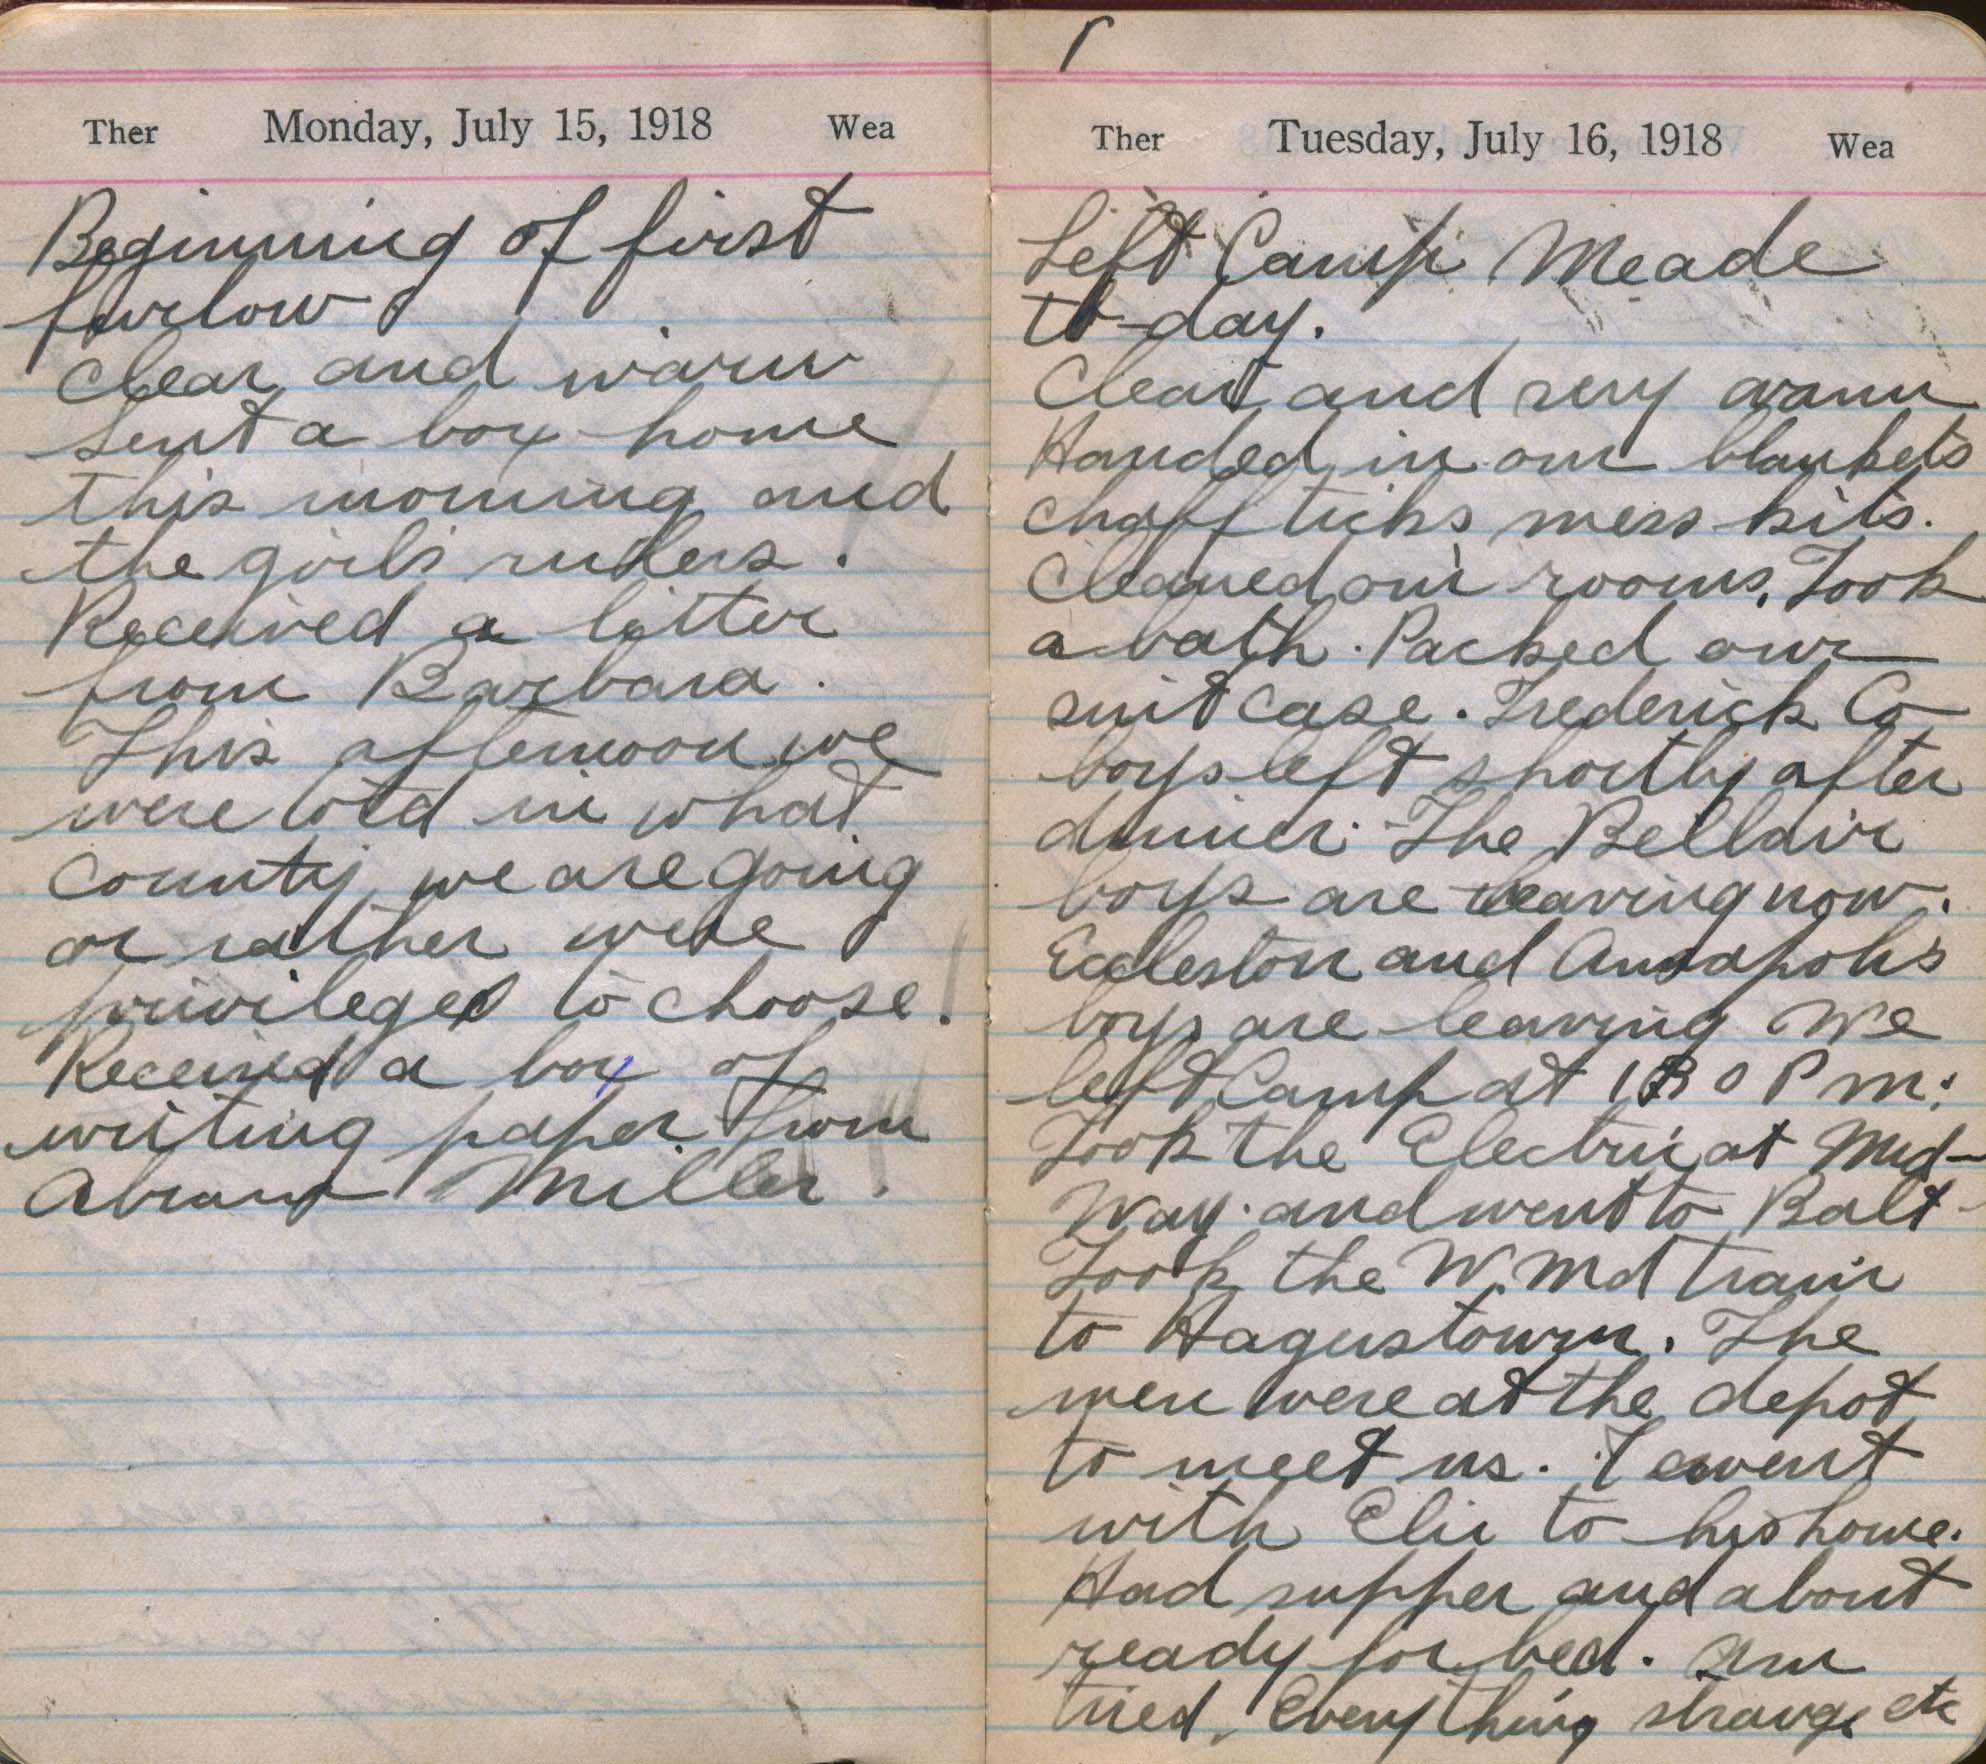 Ther Monday, July 15, 1918 Wea
Beginning of first
furlow
Clear and warm
Sent a box home
this morning and
the girls rulers.
Received a letter
from Barbara.
This afternoon we
were told in what
County we are going
or rather were
privileged to choose.
Received a box of
writing paper from
Abram Miller.
Ther Tuesday, July 16, 1918 Wea
Left Camp Meade
to-day.
Clear and very warm
Handed in our blankets
chaff ticks mess kits.
Cleaned our rooms, Took
a bath. Packed our
suit case. Frederick Co
boys left shortly after
dinner. The Bellair
boys are leaving now.
Eccleston and Annapolis
boys are leaving We
left Camp at 130 P m.
Took the Electric at Mid-
way. and went to Balt-
Took the W. Md train
to Hagerstown. The
men were at the depot
to meet us. I went
with Eli to his home.
Had supper and about
ready for bed. Am
tried. Everything strange etc